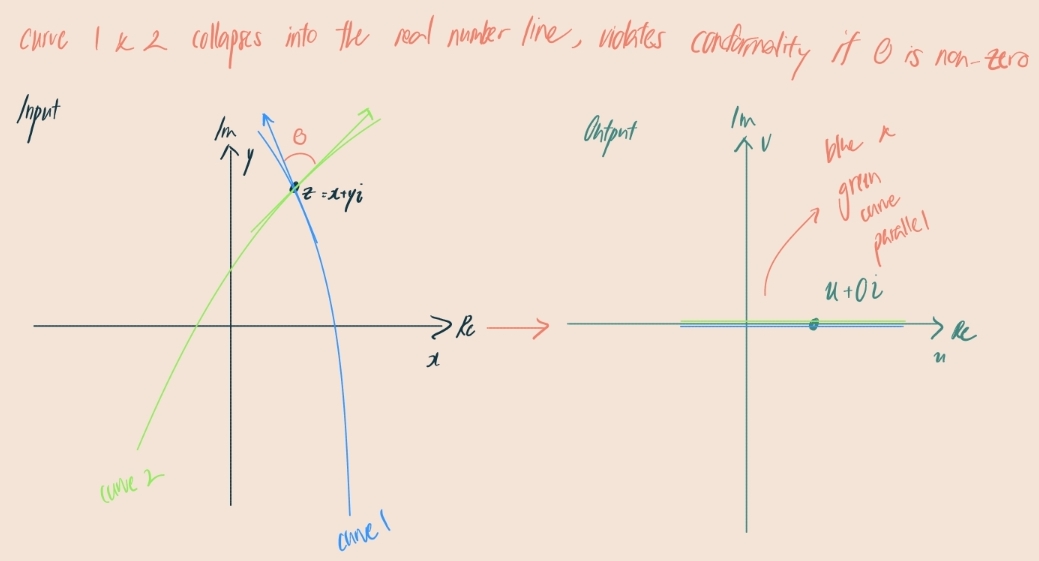 curve 1 & 2 collapses into the real number line, violates conformality if θ is non-zero
Input
Im
y
θ
z = x+yi
Re
x
curve 2
curve 1
Output
Im
v
blue &
green
curve
parallel
u+0i
Re
u